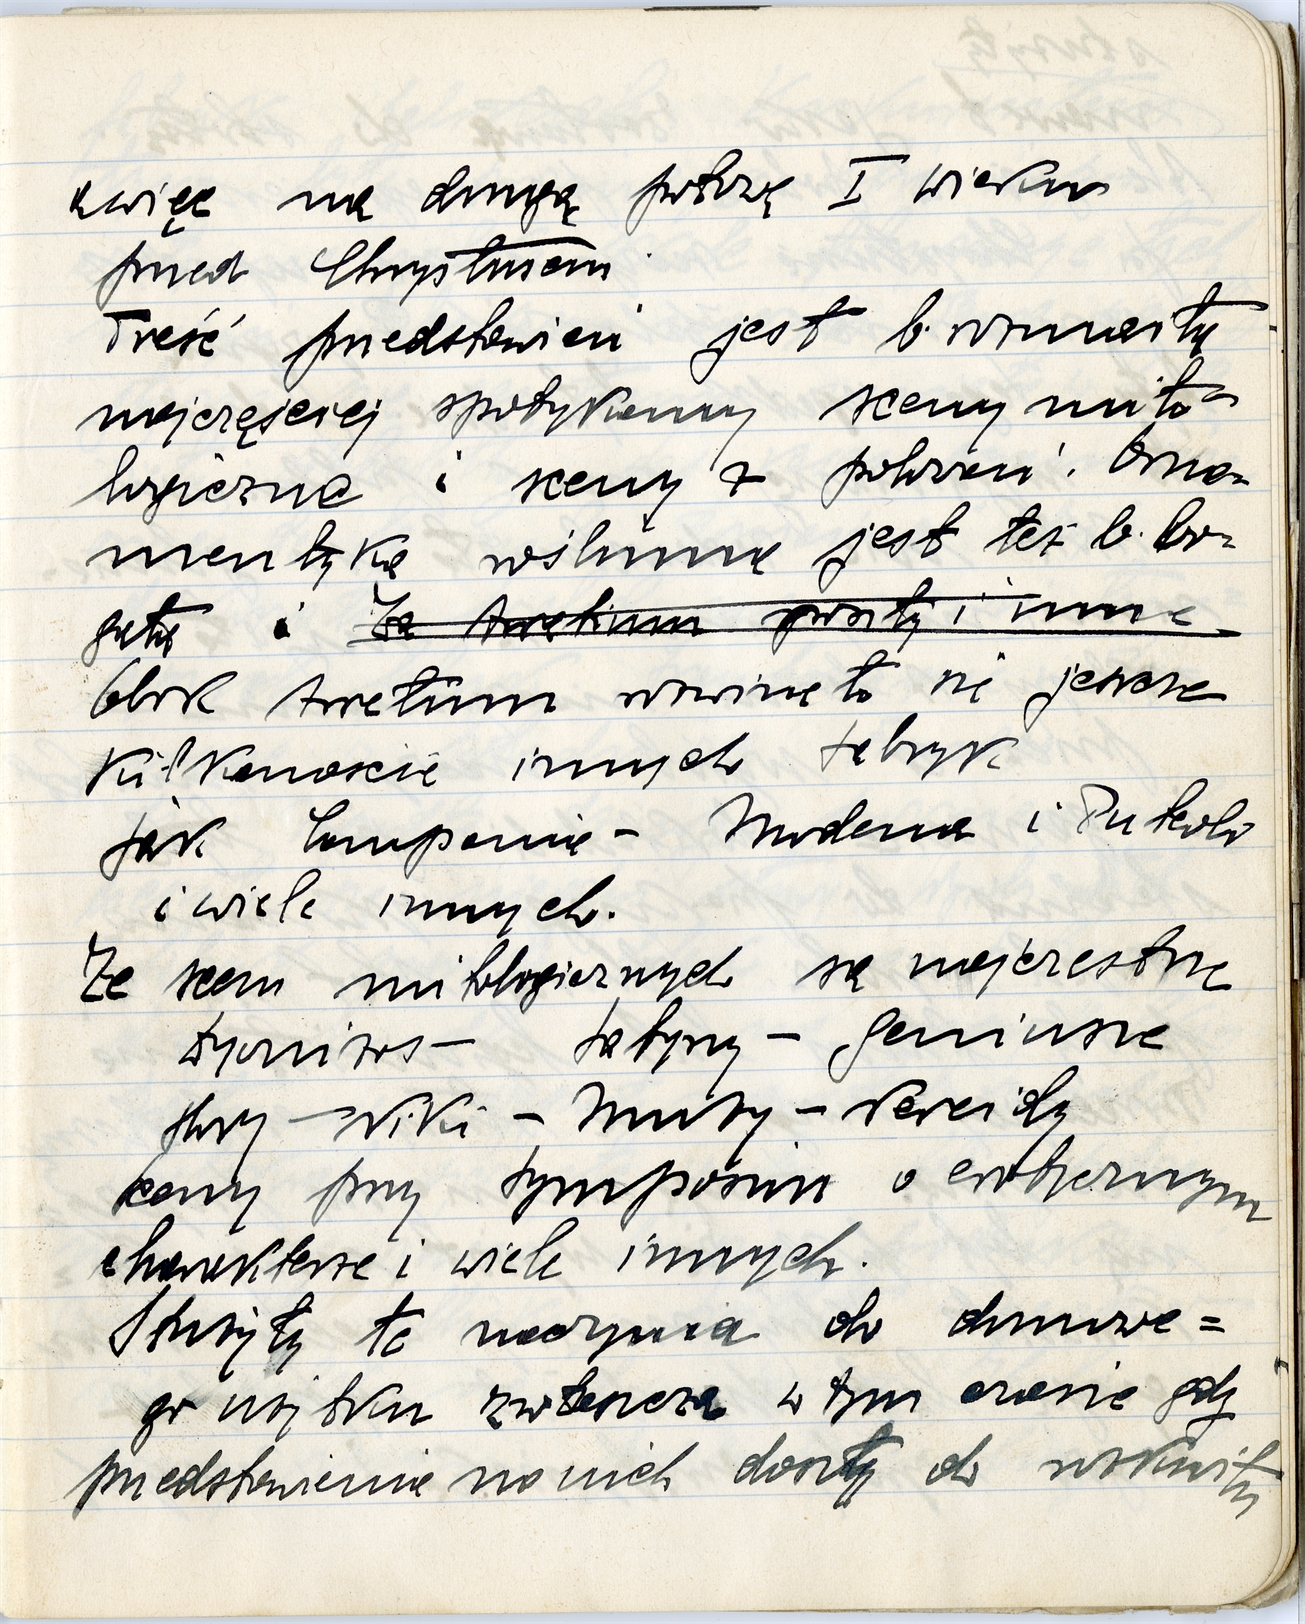 a więc na drugą połowę I wieku
przed Chrystusem.
Treść przedstawień jest b. rozmaita
najczęściej spotykamy sceny mito=
logiczne i sceny z polowań. Orna=
mentyka roślinna jest też b. bo=
gata i Za Aretium poszły i inne
Obok Aretium rozwinęło się jeszcze
kilkanaście innych fabryk
jak Kampania – Modena i Puteoli
i wiele innych.
Ze scen mitologicznych są najczęstsze
Dyonizos – Satyry – Geniusze
Hory – Niki – Muzy – Nereidy
sceny przy sympozium o erotycznym
charakterze i wiele innych.
Służyły te naczynia do domowe=
go użytku zwłaszcza w tym czasie gdy
przedstawienie na nich doszły do rozkwitu